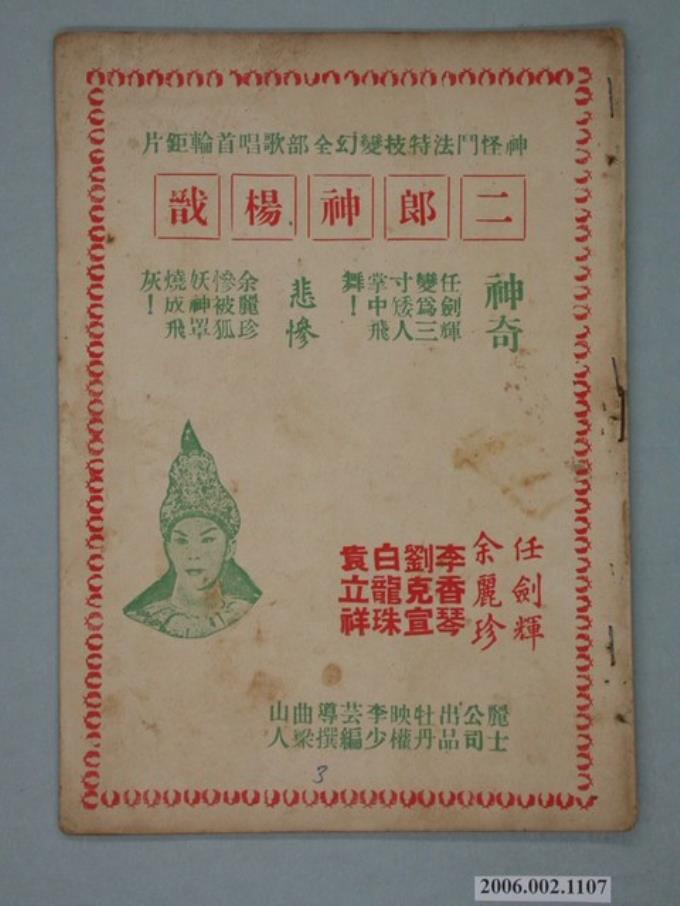 神怪鬥法特技變幻全部歌唱首輪鉅片
二郎神楊戩
神奇
任劍輝
變爲三
寸矮人
掌中飛
舞！
悲慘
余麗珍
慘被狐
妖神罩
燒成飛
灰！
任劍輝
余麗珍
李香琴
劉克宣
白龍珠
袁立祥
麗士
公司
出品
牡丹
映權
李少
芸編
導撰
曲梁
山人
3
2006.002.1107